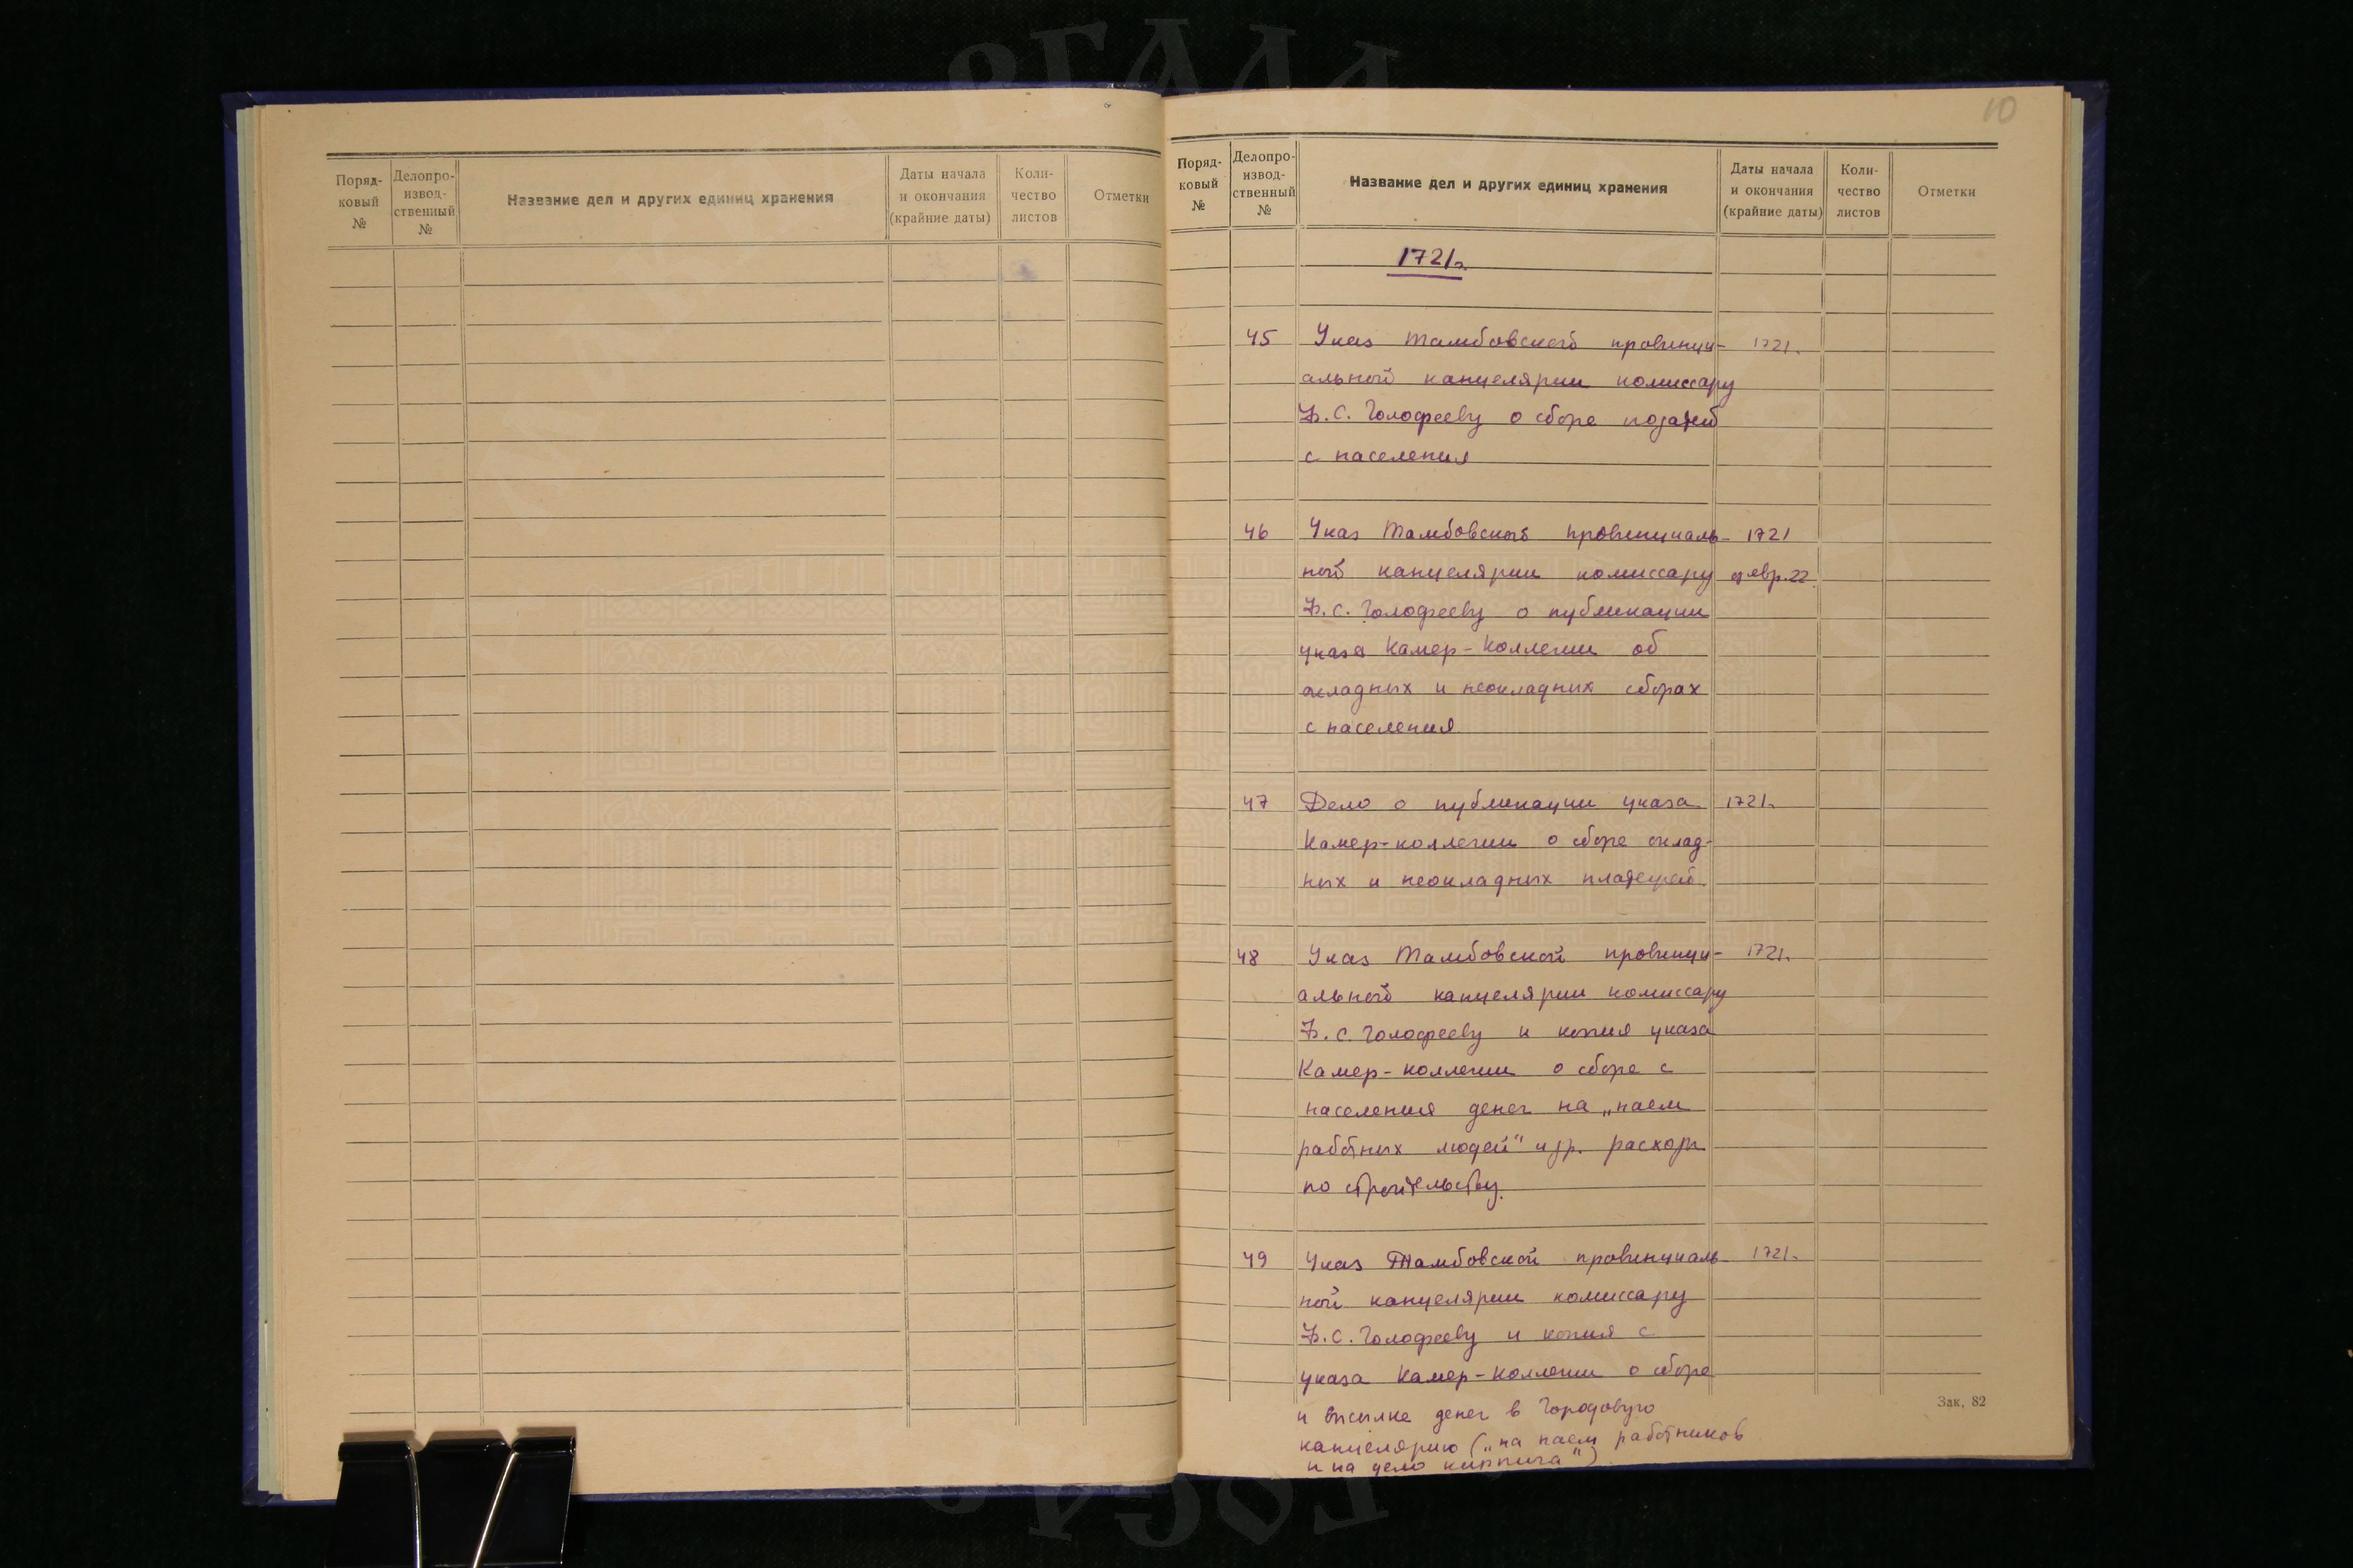 Поряд-
ковый
№
Делопро-
извод-
ственный
№
Название дел и других единиц хранения
Даты начала
и окончания
(крайние даты)
Коли-
чество
листов
Отметки
10
Поряд-
ковый
№
Делопро-
извод-
ственный
№
Название дел и других единиц хранения
Даты начала
и окончания
(крайние даты)
Коли-
чество
листов
Отметки
1721г.
45 Указ Тамбовской провинци- 1721г.
альной канцелярии комиссару
Б.С. Голофееву о сборе податей
с населения
46 Указ Тамбовской провинциаль- 1721
ной канцелярии комиссару февр.22
Б.С. Голофееву о публикации
указа Камер-Коллегии об
окладных и неокладных сборах
с населения
47 Дело о публикации указа 1721г.
Камер-коллегии о сборе оклад-
ных и неокладных платежей
48 Указ Тамбовской провинци- 1721г.
альной канцелярии комиссару
Б.С. Голофееву и копия указа
Камер-коллегии о сборе с
населения денег на „наем
работных людей" и др. расходы
по строительству.
49 Указ Тамбовской провинциаль- 1721г.
ной канцелярии комиссару
Б.С. Голофееву и копия с
указа Камер-Коллегии о сборе
и высылке денег в Городовую
канцелярию („на наем работников
и на дело кирпича")
Зак. 82